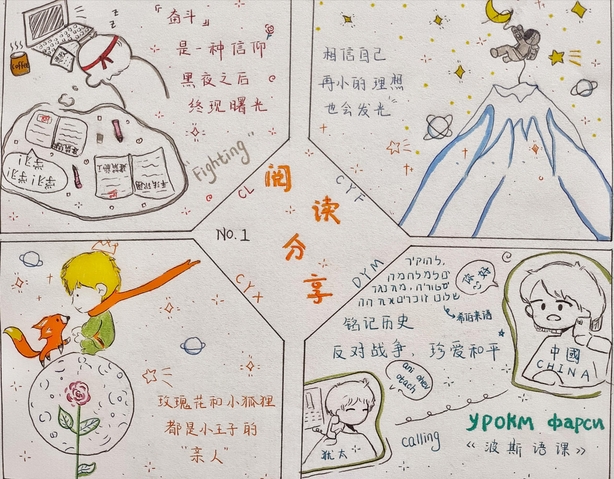 「奋斗」
是一种信仰
黑夜之后
终现曙光
"Fighting"
CL
coffee
z
z
相信自己
再小的理想
也会发光"
CYF
阅
读
分
享
NO.1
CYX
玫瑰花和小狐狸
都是小王子的
"亲人"
DYM
你好
希伯来语
铭记历史
反对战争，珍爱和平
中國
CHINA
ani ohev
otach
calling
犹太
УРОКМ ФАРСИ
《波斯语课》